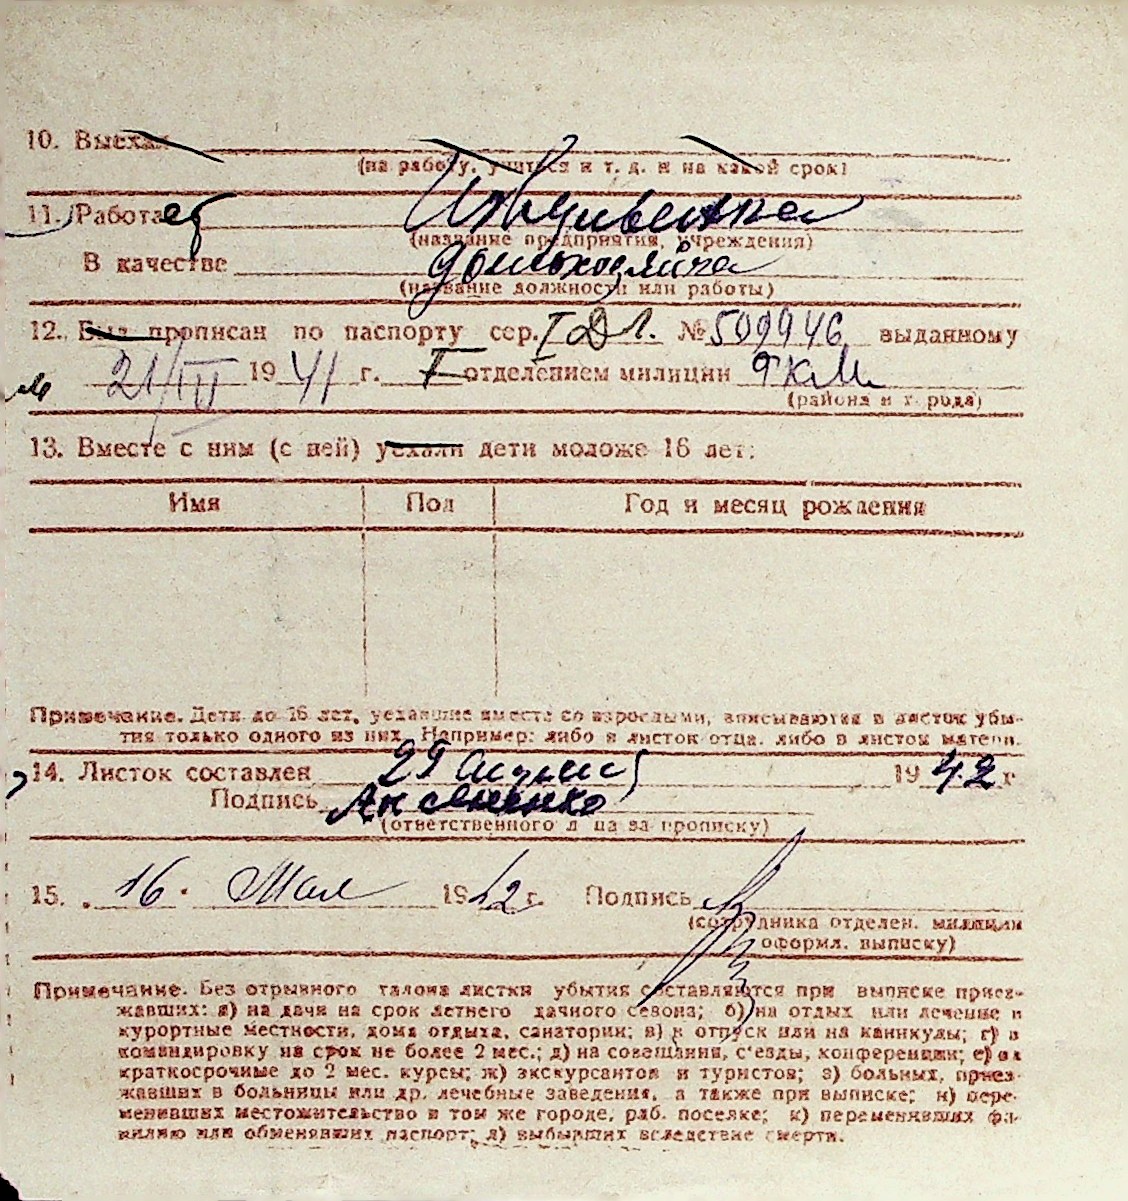 10. Выехал
(на работу, учиться и т. д. и на какой срок)
11. Работает Иждивенка
(название предприятия, учреждения)
В качестве домохозяйка
(название должности или работы)
12. Был прописан по паспорту сер. I Д Л. № 509946 выданному
21/III 1941 г. отделением милиции
(района и г. рода)
13. Вместе с ним (с ней) уехали дети моложе 16 лет:
Имя Пол Год и месяц рождения
Примечание. Дети до 16 лет, уехавшие вместе со взрослыми, вписываются в листок убы-
тия только одного из них. Например: либо в листок отца, либо в листок матери.
14. Листок составлен 29 1942 г
Подпись Аксененко
(ответственного л ца за прописку)
15. 16. Мая 1942 г. Подпись
(сотрудника отделен. милиции
оформл. выписку)
Примечание. Без отрывного талона листки убытия составляются при выписке приез-
жавших: а) на дачи на срок летнего дачного сезона; б) на отдых или лечение в
курортные местности, дома отдыха, санатории; в) в отпуск или на каникулы; г) в
командировку на срок не более 2 мес.; д) на совещания, с'езды, конференции; е) на
краткосрочные до 2 мес. курсы; ж) экскурсантов и туристов; з) больных, приез-
жавших в больницы или др. лечебные заведения, а также при выписке; и) пере-
менивших местожительство в том же городе, раб. поселке; к) переменивших фа-
милию или обменявших паспорт; л) выбывших вследствие смерти.